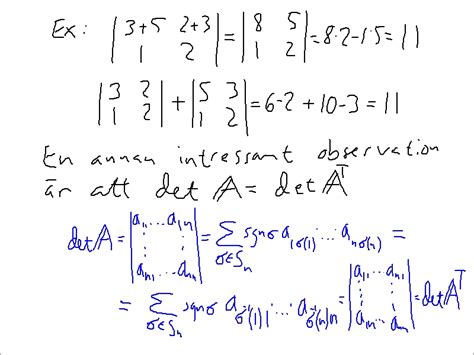 Ex: |3+5 2+3; 1 2| = |8 5; 1 2| = 8·2-1·5 = 11
|3 2; 1 2| + |5 3; 1 2| = 6-2 + 10-3 = 11
En annan intressant observation
är att det A = det Aᵀ
det A = |a₁₁ ... a₁ₙ; ⋮ ⋮; aₙ₁ ... aₙₙ| = ∑_{σ∈Sₙ} sgn σ a_{1σ(1)} ... a_{nσ(n)} =
= ∑_{σ∈Sₙ} sgn σ a_{σ⁻¹(1)1} ... a_{σ⁻¹(n)n} = |a₁₁ ... aₙ₁; ⋮ ⋮; a₁ₙ ... aₙₙ| = det Aᵀ